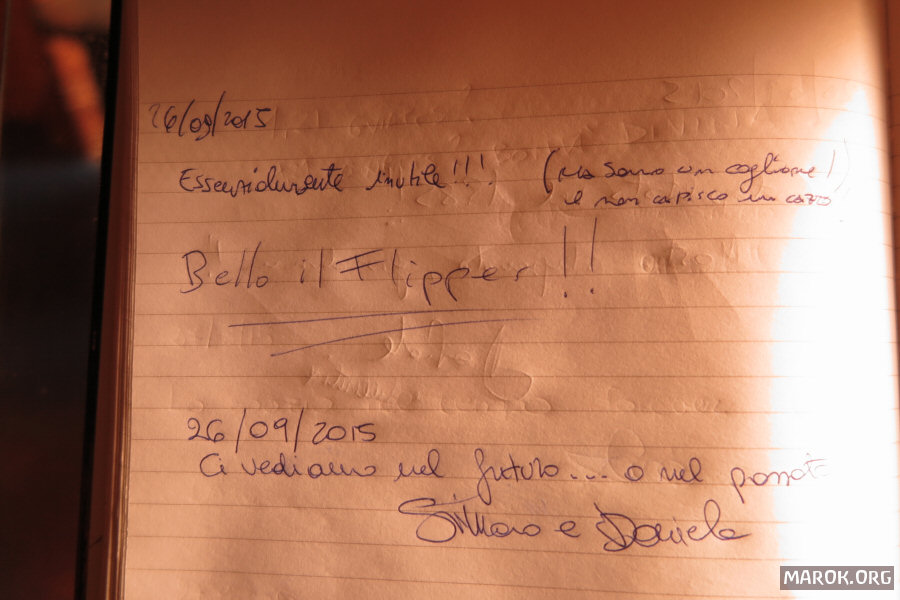 26/09/2015
Essenzialmente inutile!!! (ma sono un coglione!
e non capisco un cazzo)
Bello il Flipper!!
26/09/2015
Ci vediamo nel futuro.... o nel passato
Simone e Daniela
MAROK.ORG